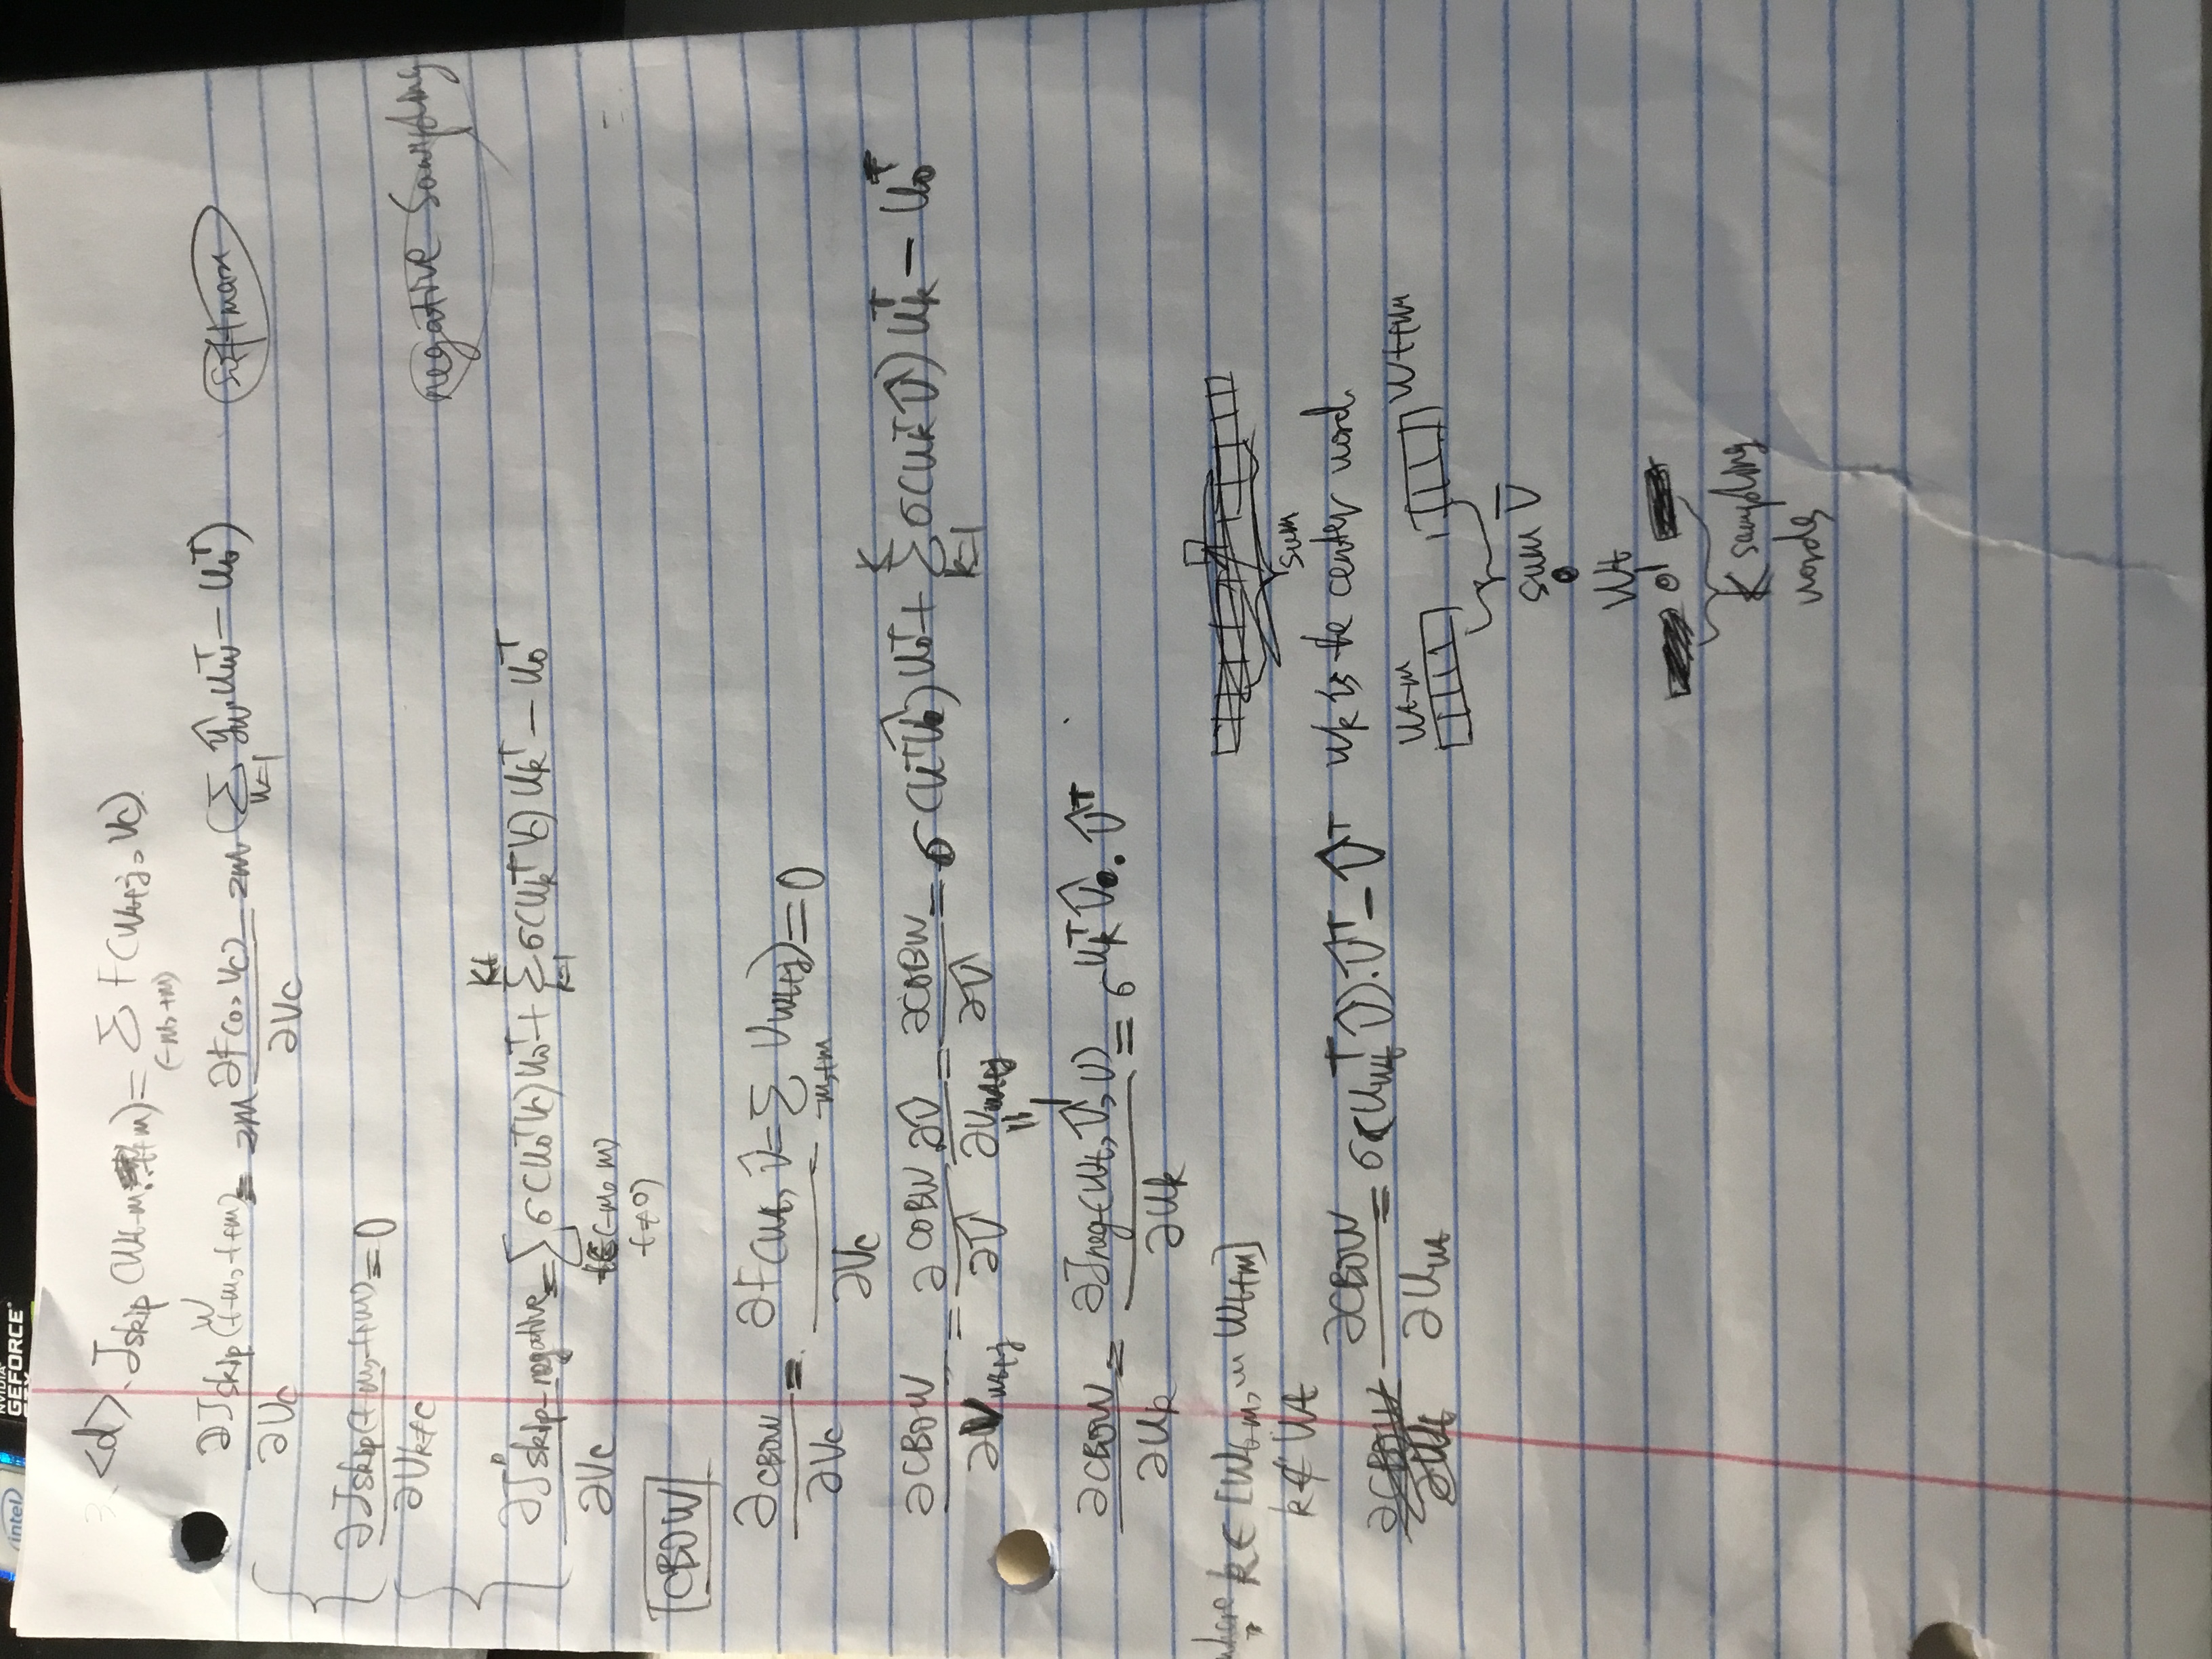 intel
NVIDIA
GEFORCE
3. <d>. J_skip (W_t-m...t+m) = Σ_(-m, +m) F(W_t+j, V_c)
∂J_skip(W_t-m, t+m) / ∂V_c = 2m ∂F(o, V_c) / ∂V_c = 2m (Σ_w=1 ŷ_w · U_w^T - U_o^T) softmax
∂J_skip(t-m, t+m) / ∂V_k≠c = 0
negative Sampling
∂J_skip-negative / ∂V_c = Σ_t∈(-m, m) t≠0) σ(U_o^T V_c) U_o^T + Σ_k=1 σ(U_k^T V_c) U_k^T - U_o^T
CBOW
∂CBOW / ∂V_c = ∂F(W_t, V̂ = Σ_-m,+m V_wt+j) / ∂V_c = 0
∂CBOW / ∂V_wt+j = ∂COBW / ∂V̂ ∂V̂ / ∂V_wt+j = ∂COBW / ∂V̂ = σ(U^T V̂) U_o^T + Σ_k=1^K σ(U_k^T V̂) U_k^T - U_o^T
|| 1
∂CBOW / ∂U_k = ∂J_neg(W_t, V̂, U) / ∂U_k = σ U_k^T V̂ · V̂^T
where k ∈ [W_t-m, ... W_t+m]
k ∉ W_t
sum
∂CBOW / ∂U_wt = σ(U_wt^T V̂) · V̂^T - V̂^T
W_k is the center word.
W_t-m W_t+m
sum V̄
W_t
K sampling
words